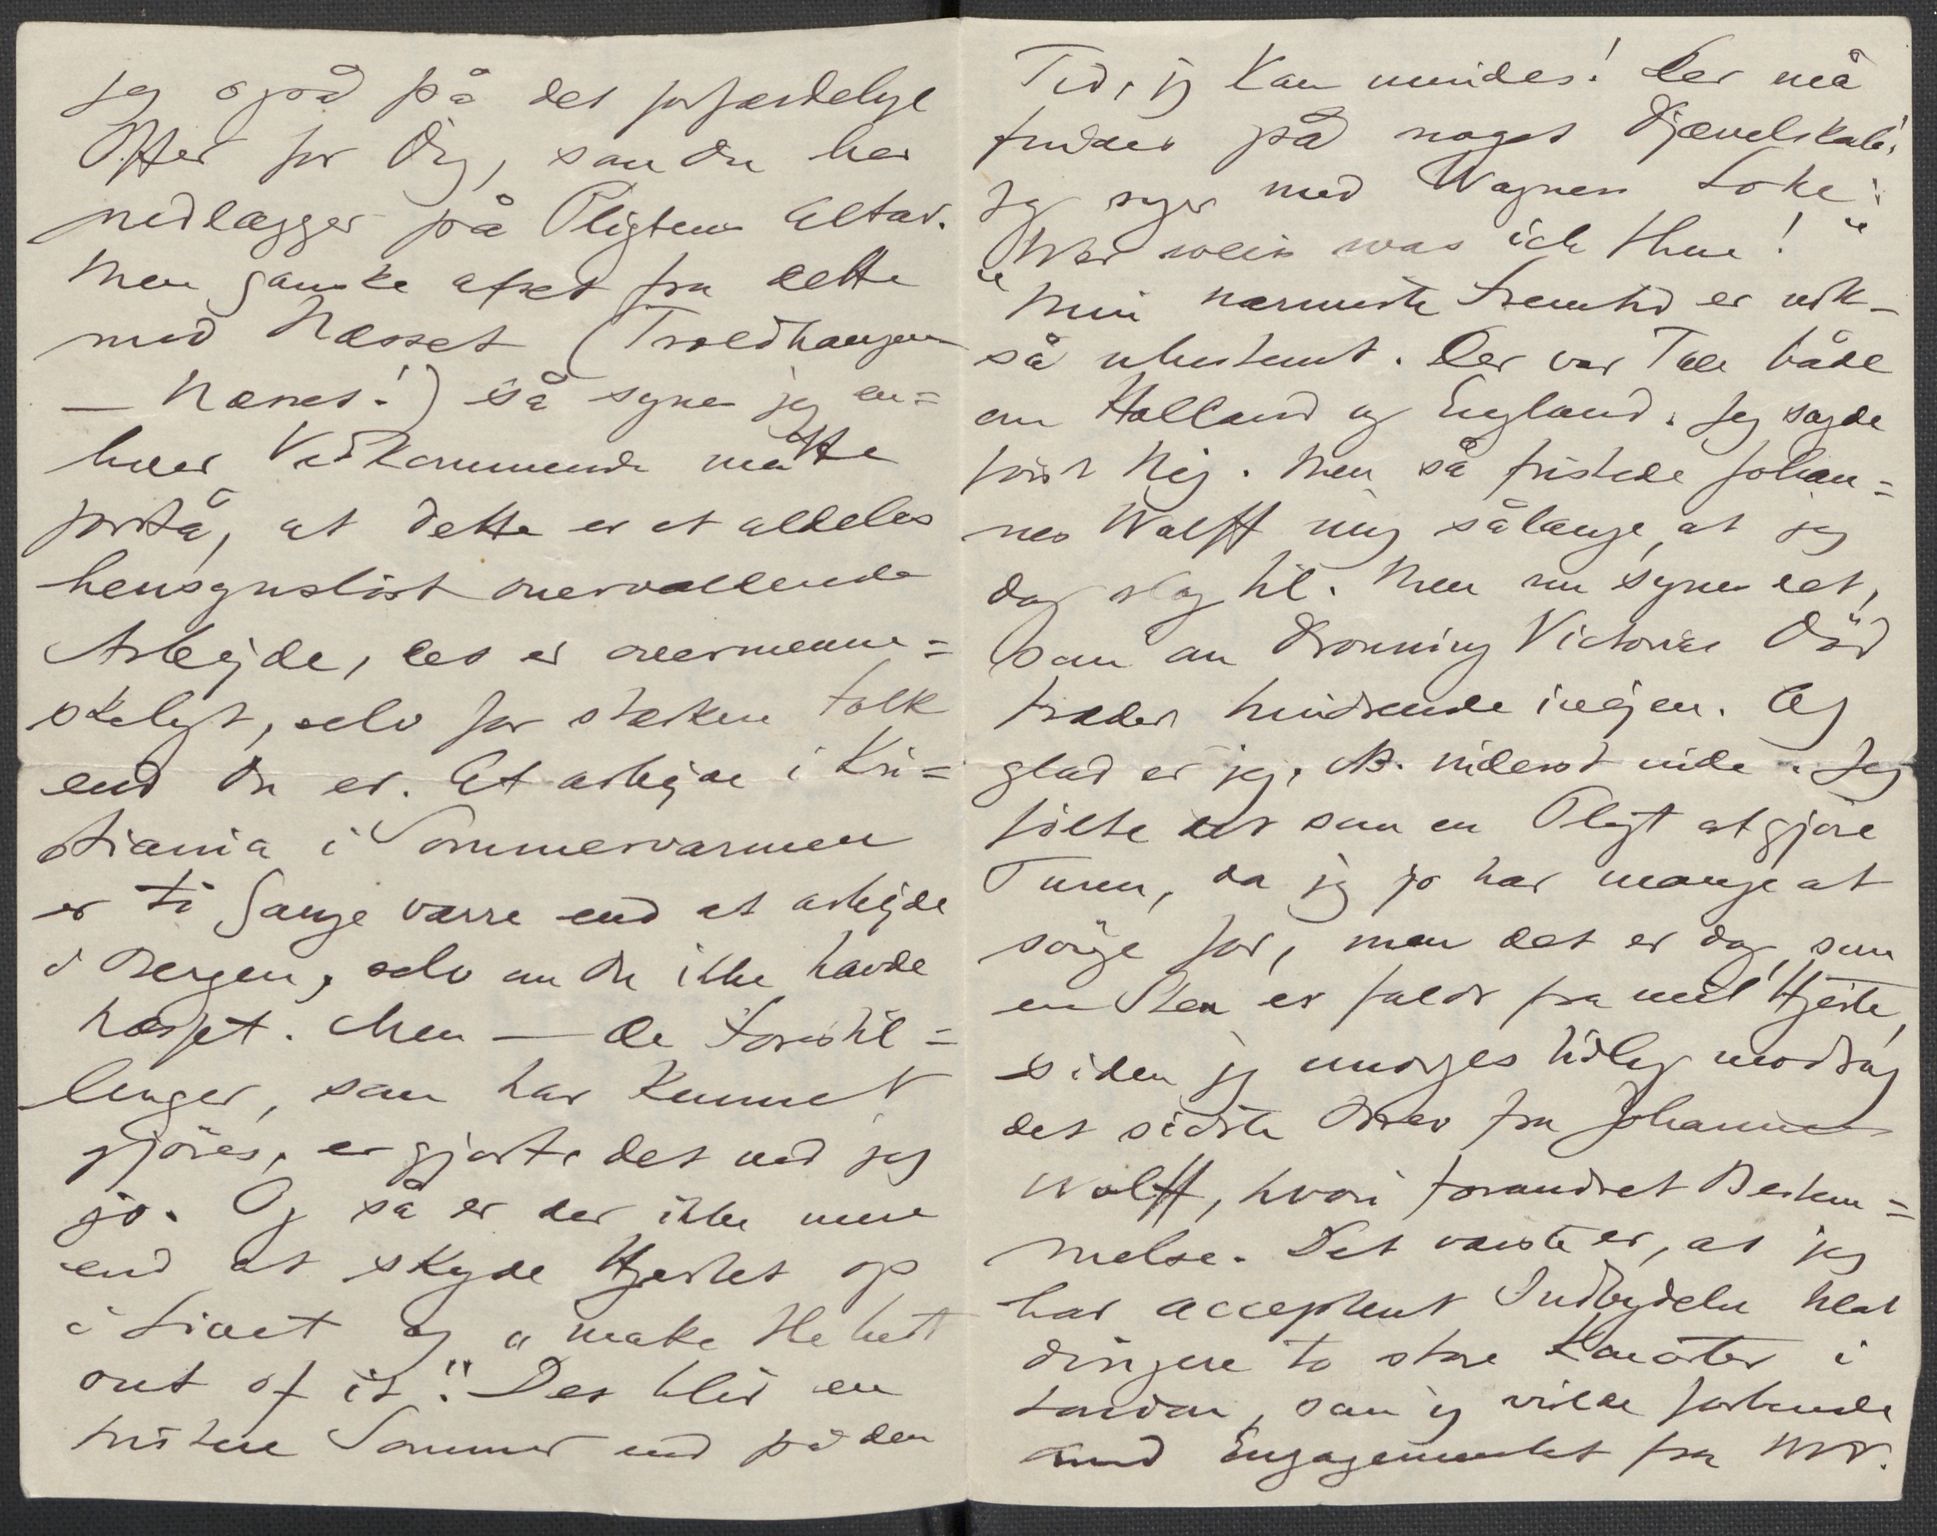 jeg også på det forfærdelige
Offer for Dig, som Du her
nedlægger på Pligtens Altar.
Men ganske afset fra dette
med Næsset (Troldhaugen
– Næsset!) så synes jeg en=
hver Vedkommende måtte
forstå, at dette er et aldeles
hensynsløst overvældende
Arbejde, der er overmenne=
skeligt, selv for stærkere Folk
end Du er. At arbejde i Kri=
stiania i Sommervarmen
er ti Gange værre end at arbejde
i Bergen, selv om Du ikke havde
Næsset. Men – de Forestil=
linger, som har kunnet
gjøres, er gjort, det ved jeg
jo. Og så er der ikke mere
end at skyde Hjertet op
i Livet og "make the best
out of it". Det blir en
tristere Sommer end på den
Tid, jeg kan mindes! Der må
findes på noget Djævelskab!
Jeg siger med Wagners Loke:
"Wer weiss was ich thue!"
Min nærmeste Fremtid er nok-
så ubestemt. Der var Tale både
om Holland og England. Jeg sagde
først Nej. Men så fristede Johan=
nes Wolff mig sålænge, at jeg
dog slog til. Men nu synes det,
som om Dronning Victorias Död
træder hindrende ivejen. Og
glad er jeg, NB. inderst inde. Jeg
følte det som en Pligt at gjøre
Turen, da jeg jo har mange at
sörge for, men det er dog, som
en Sten er faldt fra mit Hjerte,
siden jeg imorges tidlig modtog
det sidste Brev fra Johannes
Wolff, hvori forandret Bestem=
melse. Det værste er, at jeg
har accepteret Indbydelse til at
dirigere to store Koncerter i
London, som jeg vilde forbinde
med Engagementet fra